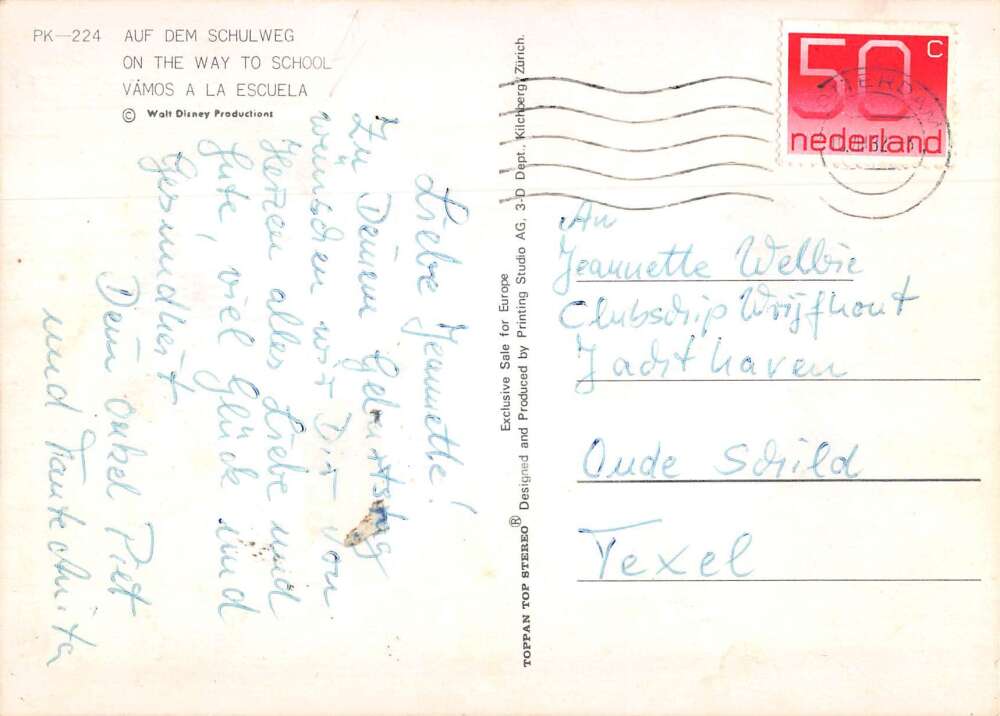 PK—224 AUF DEM SCHULWEG
ON THE WAY TO SCHOOL
VÁMOS A LA ESCUELA
© Walt Disney Productions
Liebe Jeannette!
Zu Deinem Geburtstag
wünschen wir Dir von
Herzen alles Liebe und
Gute, viel Glück und
Gesundheit
Dein Onkel Piet
und Tante Anita
Exclusive Sale for Europe
TOPPAN TOP STEREO® Designed and Produced by Printing Studio AG, 3-D Dept., Kilchberg, Zürich.
50 c
nederland
An
Jeannette Welbie
Clubschip Wrijfhout
Jachthaven
Oude Schild
Texel